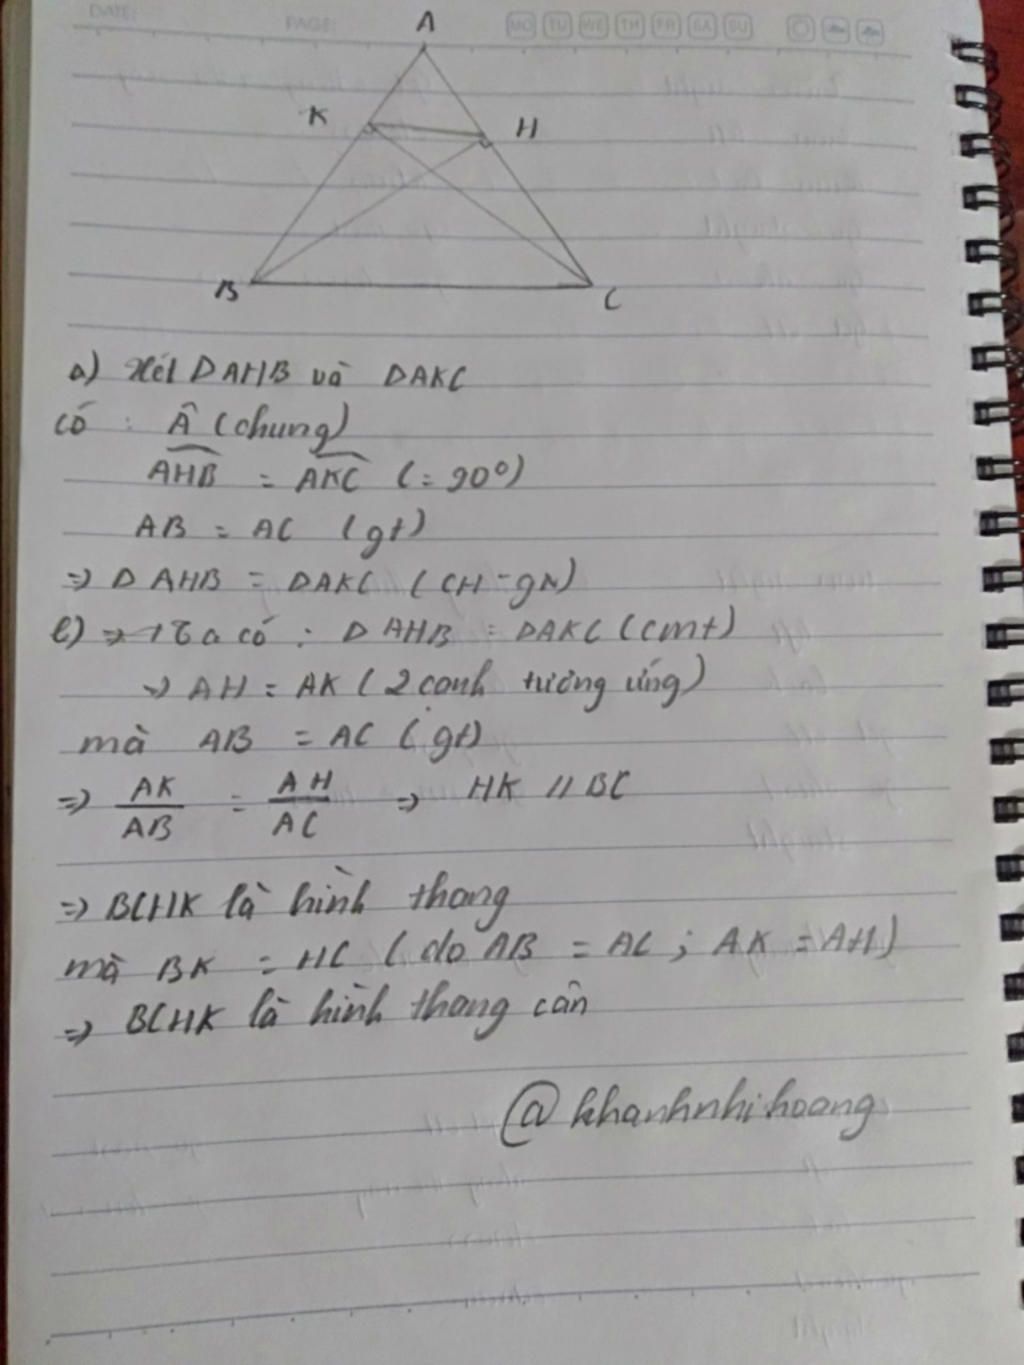 DATE:
PAGE:
MO TU WE TH FR SA SU
A
K
H
B
C
a) Xét DAHB và DAKC
có : Â (chung)
AHB = AKC (= 90°)
AB = AC (gt)
=> DAHB = DAKC (CH-gN)
b) => Ta có : DAHB = DAKC (cmt)
=> AH = AK (2 canh tương ứng)
mà AB = AC (gt)
=> AK/AB = AH/AC => HK // BC
=> BCHK là hình thang
mà BK = HC (do AB = AC ; AK = AH)
=> BCHK là hình thang cân
@khanhnhihoang